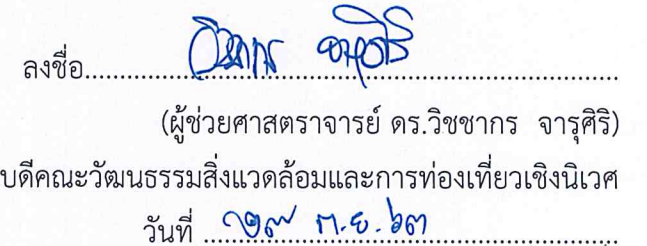 ลงชื่อ วิชชากร จารุศิริ
(ผู้ช่วยศาสตราจารย์ ดร.วิชชากร จารุศิริ)
บดีคณะวัฒนธรรมสิ่งแวดล้อมและการท่องเที่ยวเชิงนิเวศ
วันที่ ๒๙ ก.ย. ๖๓